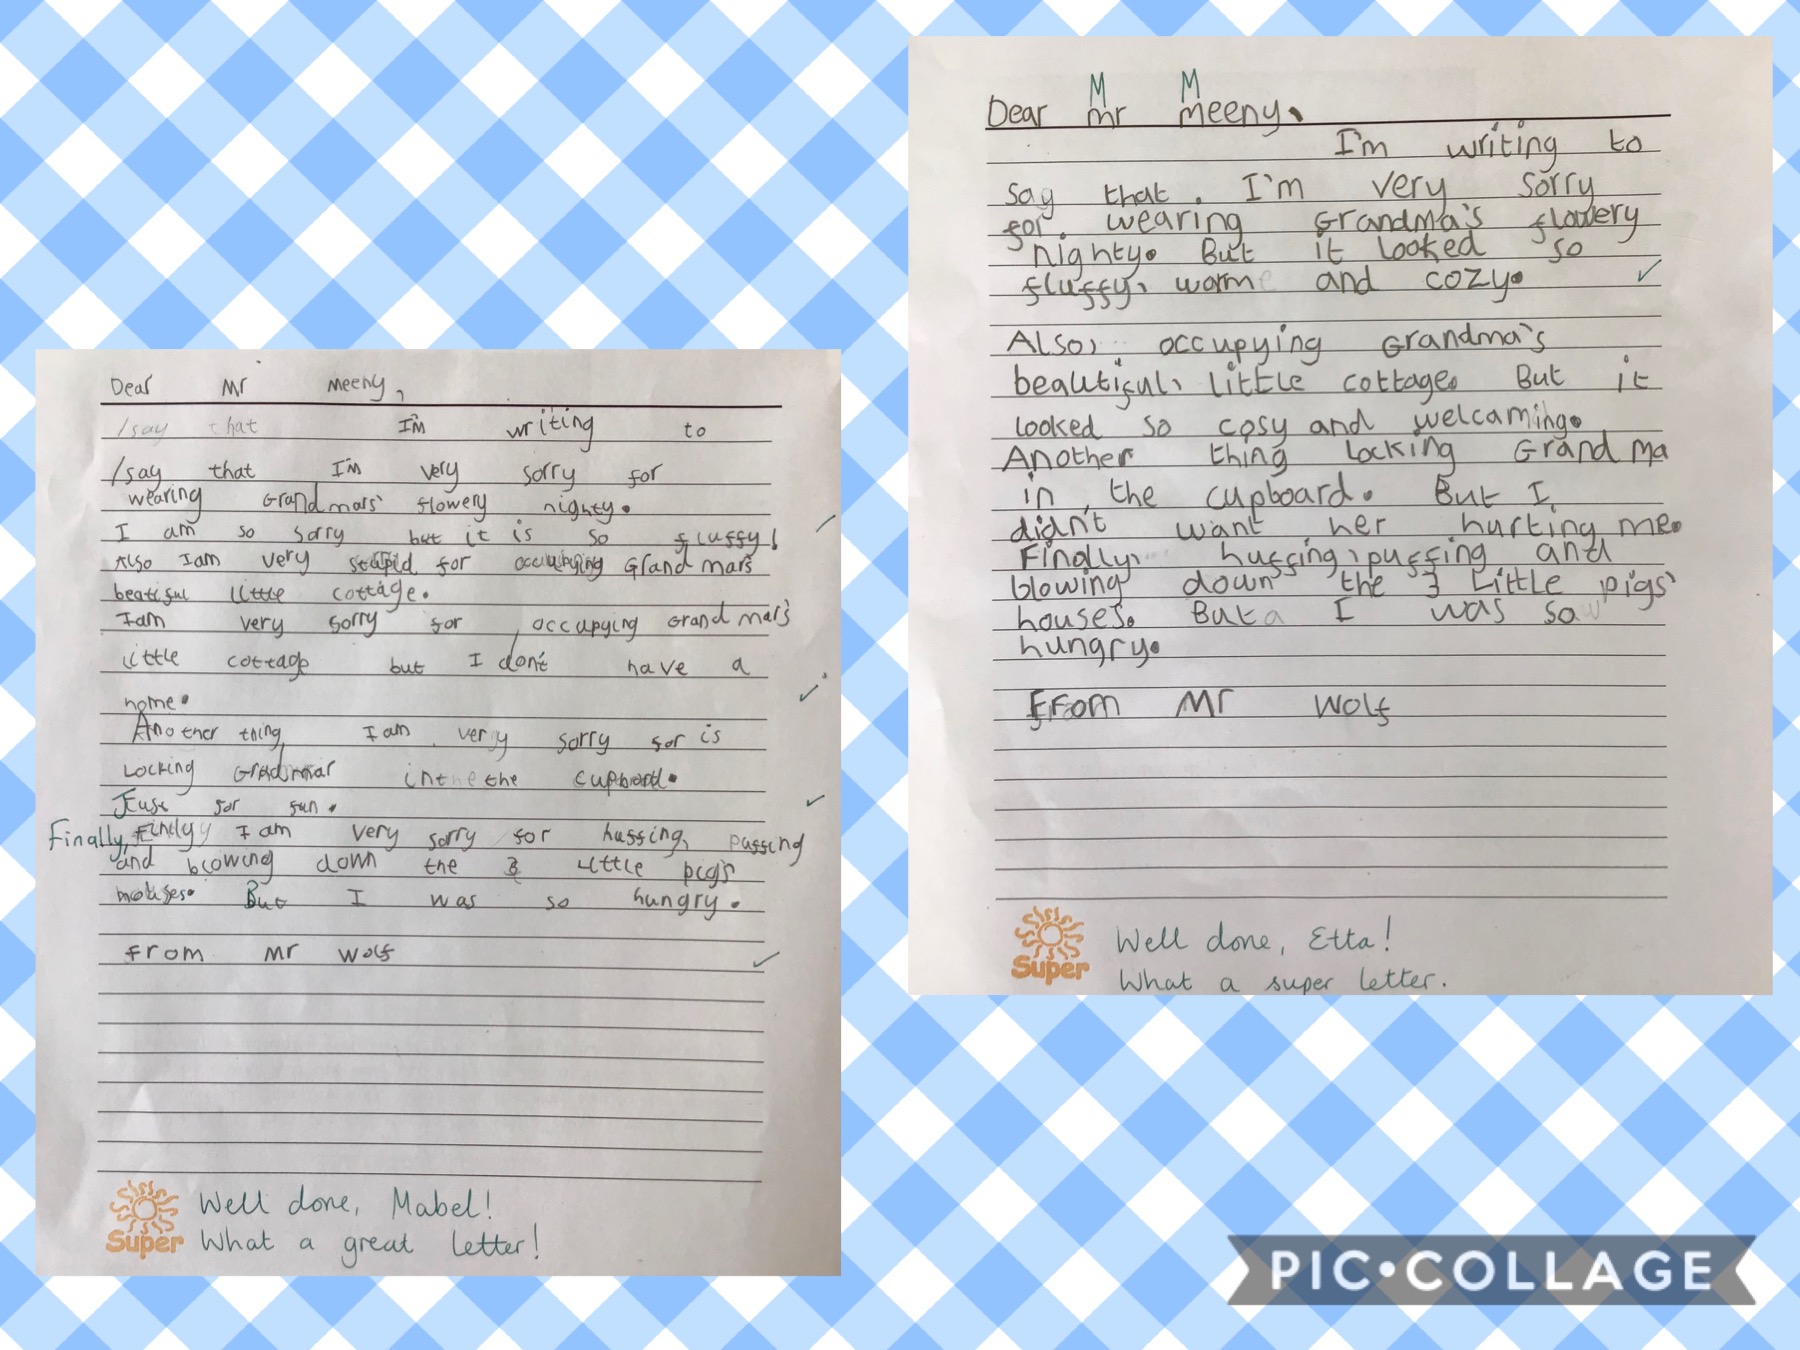 Dear Mr Meeny,
/say that I'm writing to
/say that I'm very sorry for
wearing Grandmars' flowery nighty.
I am so sorry but it is so fluffy!
Also I am very stupid for occupying Grandmars
beatiful little cottage.
I am very sorry for occupying Grandmars'
little cottage but I don't have a
home.
Another thing I am very sorry for is
Locking Grandmar in the the cupboard.
Just for fun.
Finally, I am very sorry for huffing, puffing
and blowing down the 3 little pigs
houses. But I was so hungry.
from Mr Wolf
Super
Well done, Mabel!
What a great letter!
M M
Dear mr meeny,
I'm writing to
say that. I'm very sorry
for. wearing Grandma's flowery
nighty. But it looked so
fluffy, worm and cozy.
Also, occupying Grandma's
beautiful, little cottage. But it
looked so cosy and welcaming.
Another thing locking Grandma
in the cupboard. But I
didn't want her hurting me.
Finally, huffing, puffing and
blowing down the 3 Little pigs'
houses. But I was so
hungry.
From Mr Wolf
Super
Well done, Etta!
What a super letter.
PIC•COLLAGE